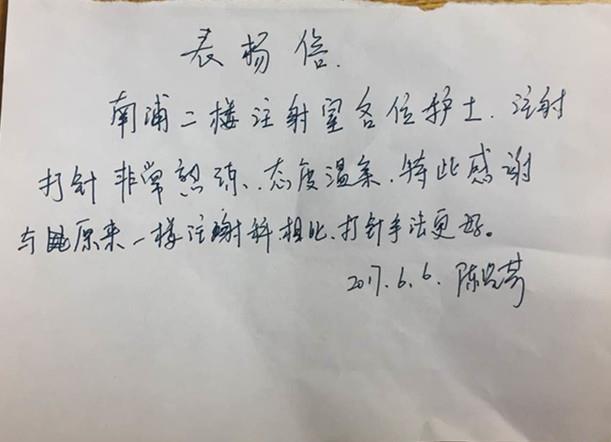 表杨信.
南浦二楼注射室各位护士.注射
打针非常熟练、态度温柔.特此感谢
与原来一楼注谢科相比、打针手法更好。
2017.6.6. 陈